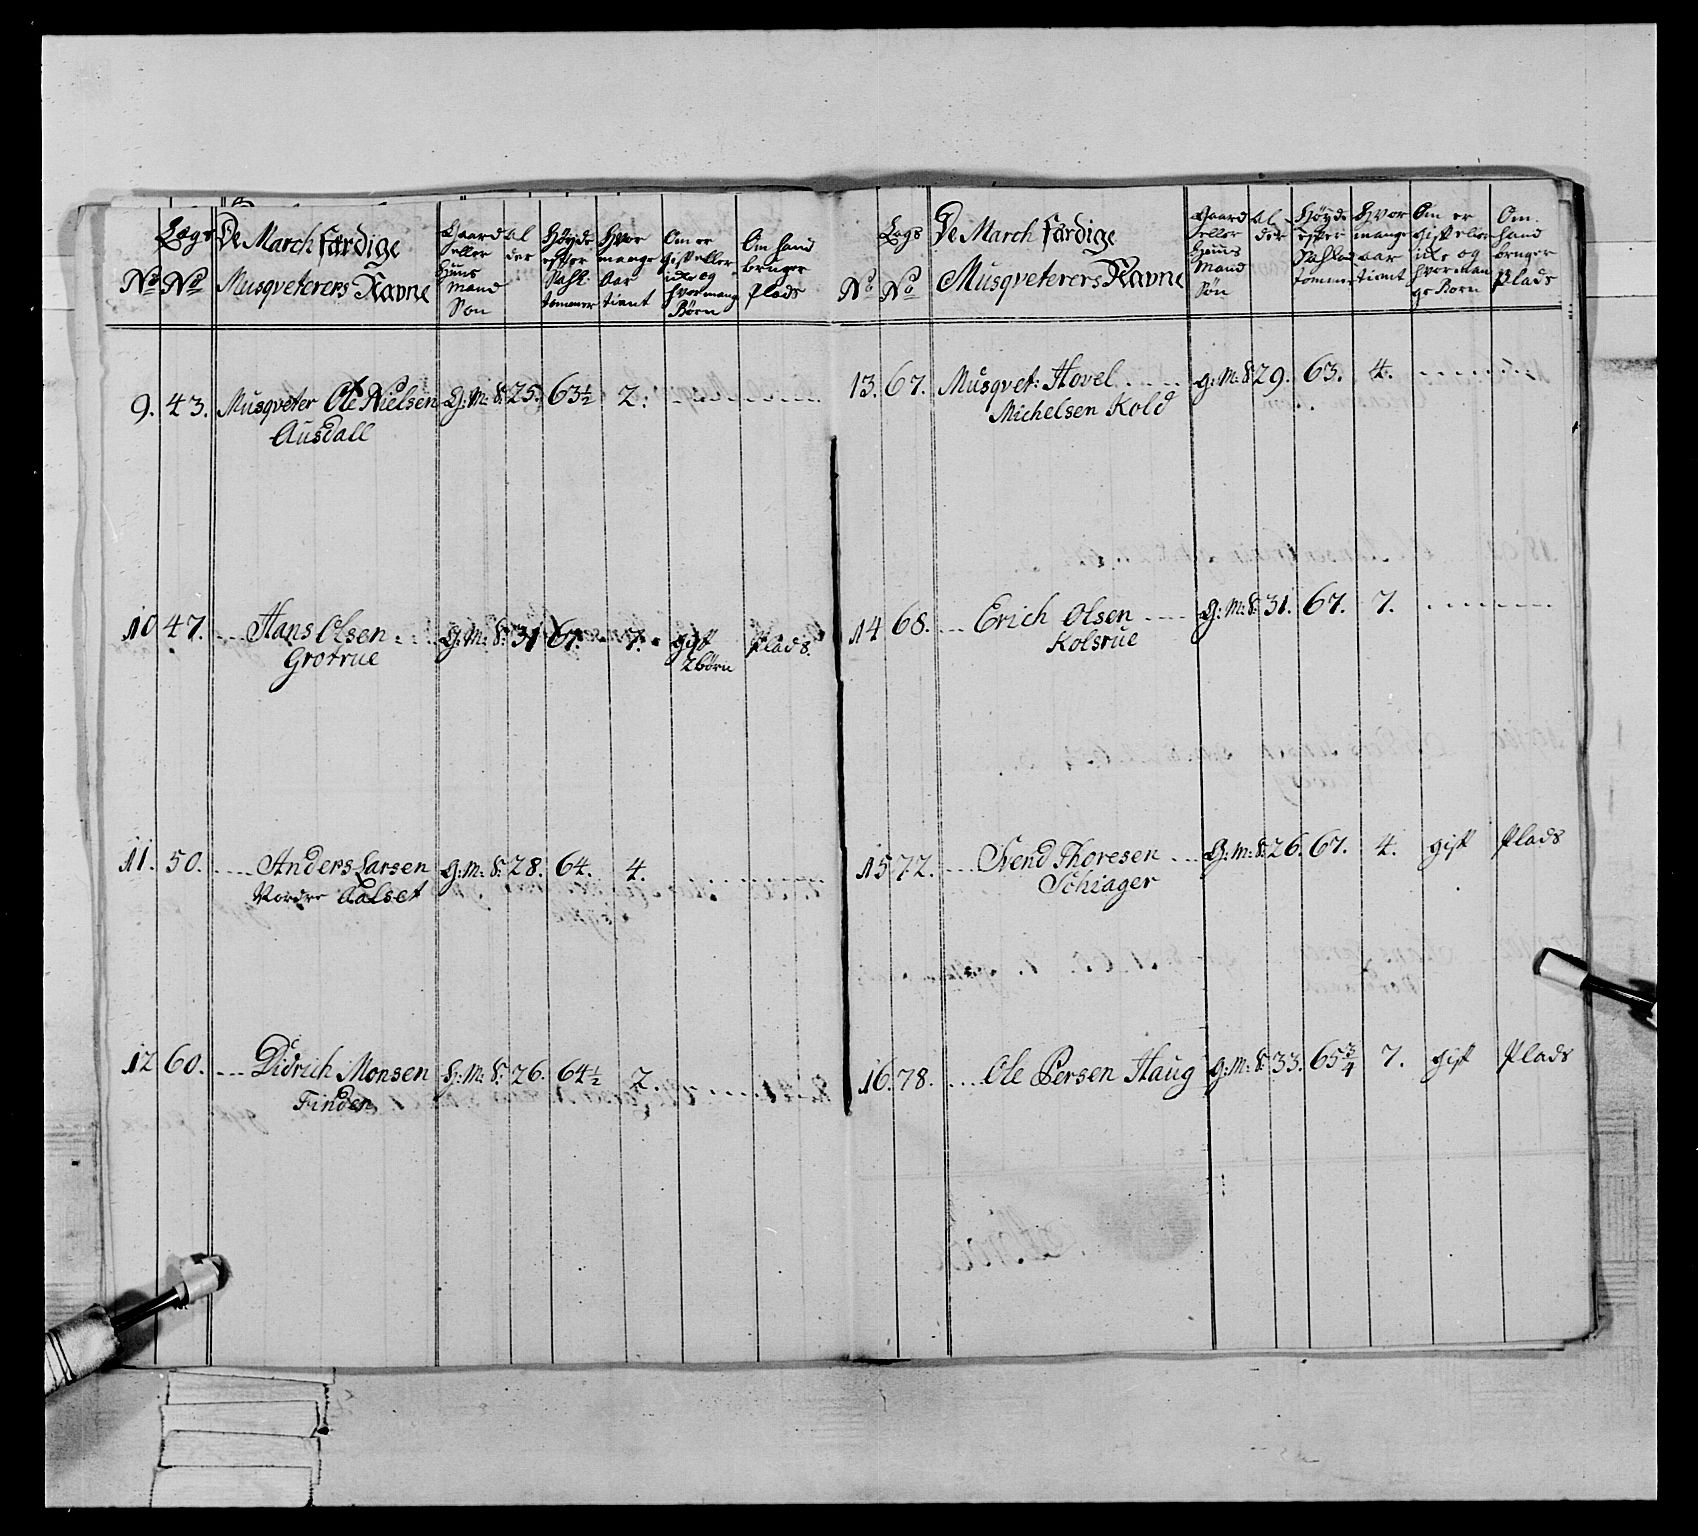 No
Lægs No
De March færdige
Musqveterers Navne
Gaard
eller
Huus
Mand
Søn
Al
der
Høyde
efter
Sahl.
tommer
Hvor
mange
Aar
tient
Om er
gift eller
icke og
hvor mang
Børn
Om hand
bruger
Plads
9. 43. Musqveter Ole Nielsen G: M: S: 25. 63½ 2.
Ausdall
10 47. Hans Olsen G: M: S: 31 67. 7. gift Plads.
Grotrue 2 børn
11. 50. Anders Larsen G: M: S: 28. 64. 4.
Nordre Aalset
12 60. Didrich Monsen H: M: S: 26. 64½ 2.
Finden
No
Lægs No
De March færdige
Musqveterers Navne
Gaard
eller
Huus
Mand
Søn
Al
der
Høyde
efter
tommer
Hvor
mange
Aar
tient
Om er
gift eller
icke og
hvor man
ge Børn
Om
hand
bruger
Plads
13. 67. Musqvet: Hovel G: M: S: 29. 63. 4.
Michelsen Kold
14 68. Erich Olsen G: M: S: 31. 67. 7.
Kolsrue
15 72. Svend Thoresen G: M: S: 26. 67. 4. gift Plads
Schiager
16. 78. Ole Persen Haug G: M: S: 33. 65¾ 7. gift Plads